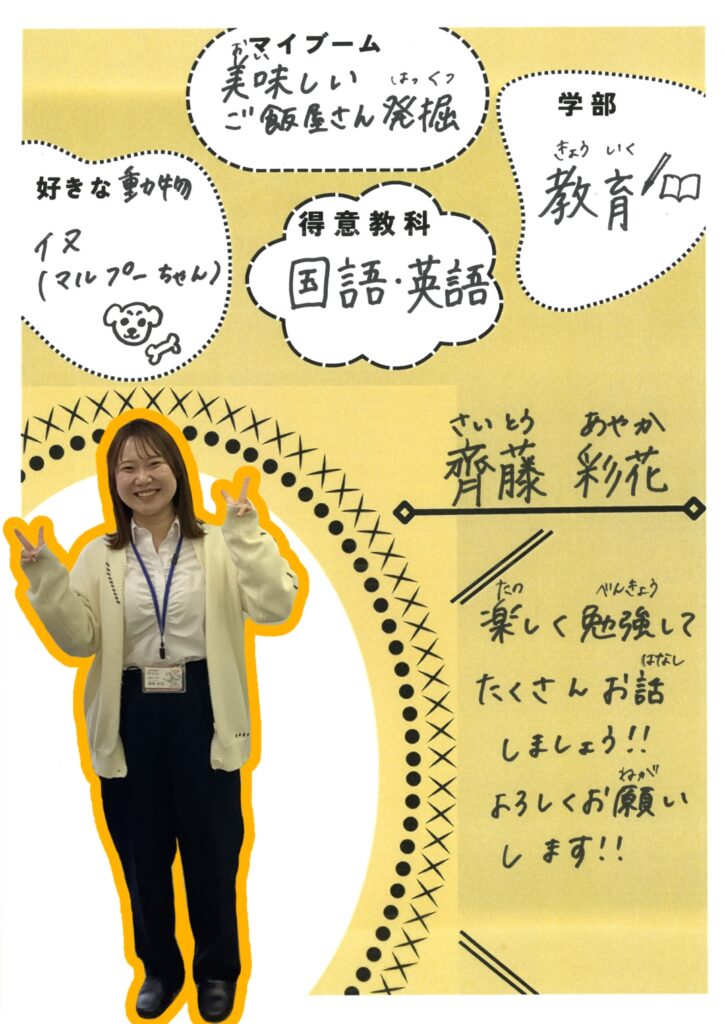 マイブーム
おい
美味しい
はっくつ
ご飯屋さん発掘
学部
きょういく
教育
好きな動物
イヌ
(マルプーちゃん)
得意教科
国語・英語
さいとう あやか
齊藤 彩花
たの べんきょう
楽しく勉強して
はなし
たくさんお話
しましょう!!
ねが
よろしくお願い
します!!